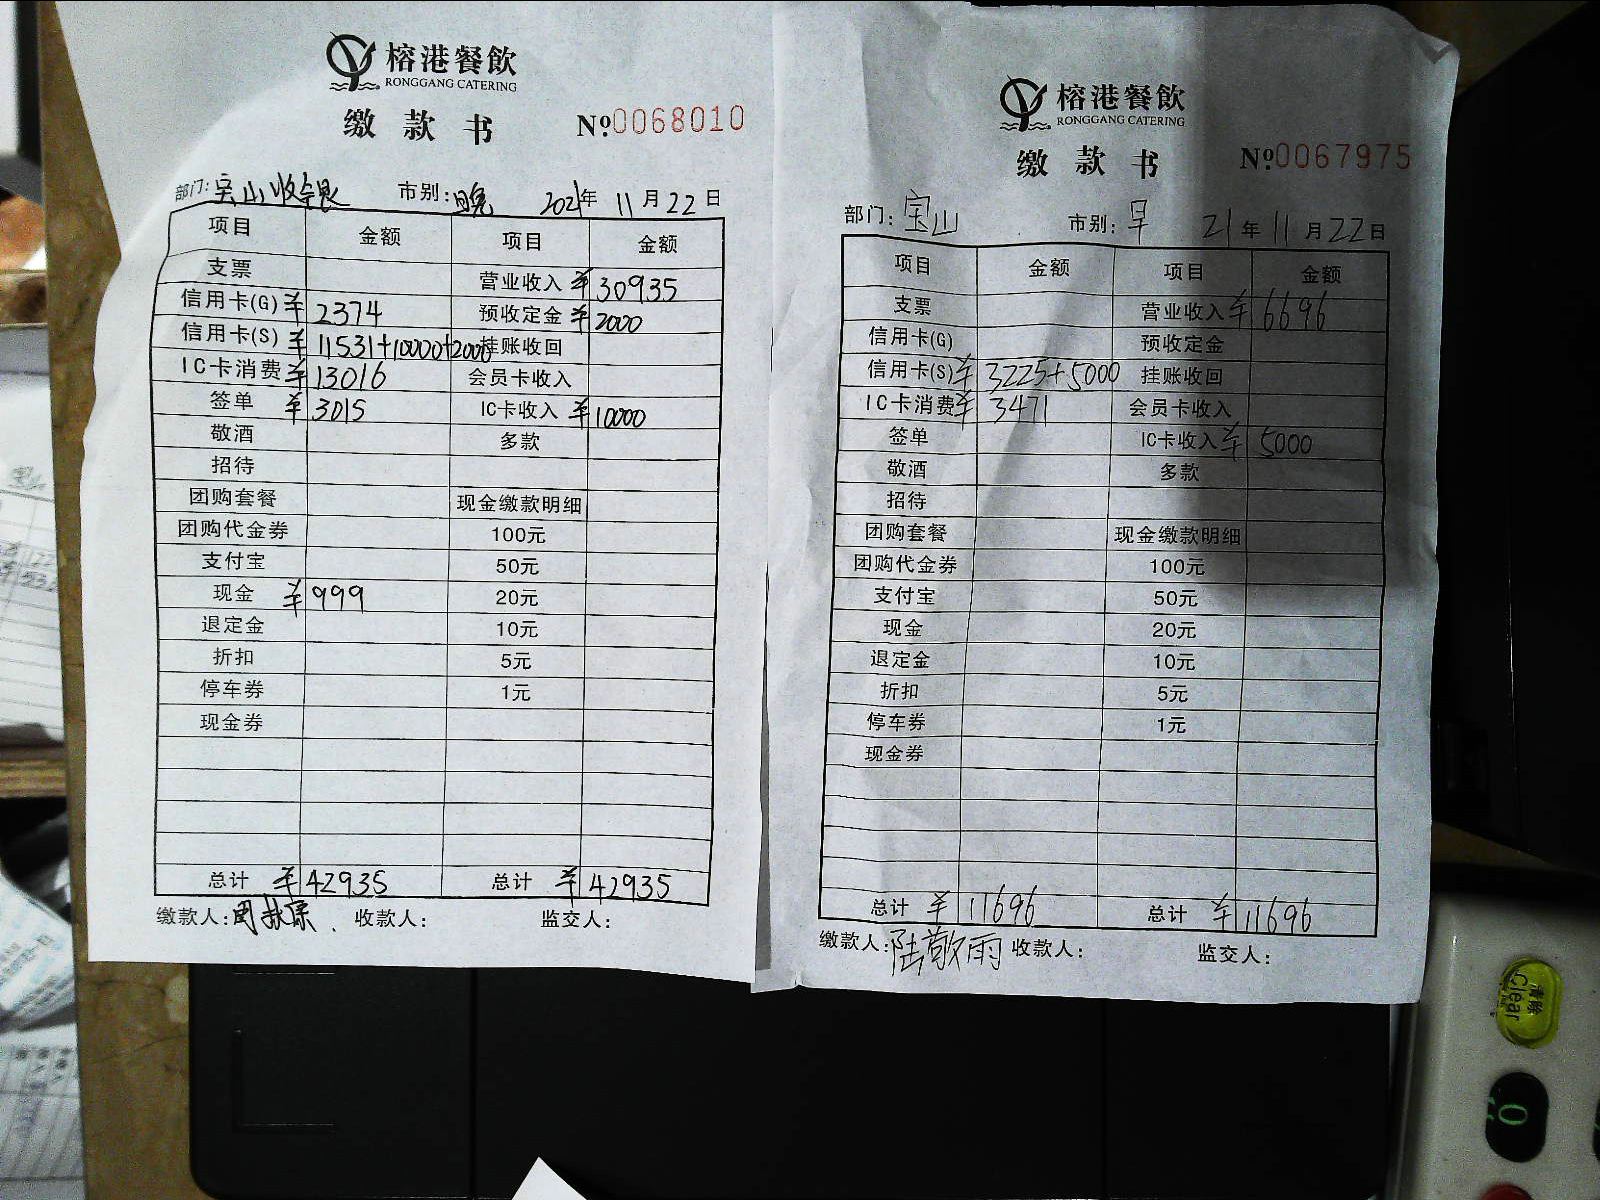 榕港餐飲
RONGGANG CATERING
缴款书 №0068010
部门：宝山收银 市别：晚 2021年 11月22日
项目 金额 项目 金额
支票 营业收入 ¥30935
信用卡(G) ¥2374 预收定金 ¥2000
信用卡(S) ¥11531+10000+2000 挂账收回
IC卡消费 ¥13016 会员卡收入
签单 ¥3015 IC卡收入 ¥10000
敬酒 多款
招待
团购套餐 现金缴款明细
团购代金券 100元
支付宝 50元
现金 ¥999 20元
退定金 10元
折扣 5元
停车券 1元
现金券
总计 ¥42935 总计 ¥42935
缴款人：周 收款人： 监交人：
榕港餐飲
RONGGANG CATERING
缴款书 №0067975
部门：宝山 市别：早 21年11月22日
项目 金额 项目 金额
支票 营业收入 ¥6696
信用卡(G) 预收定金
信用卡(S) ¥3225+5000 挂账收回
IC卡消费 ¥3471 会员卡收入
签单 IC卡收入 ¥5000
敬酒 多款
招待
团购套餐 现金缴款明细
团购代金券 100元
支付宝 50元
现金 20元
退定金 10元
折扣 5元
停车券 1元
现金券
总计 ¥11696 总计 ¥11696
缴款人：陆敬雨 收款人： 监交人：
清除
Clear
0